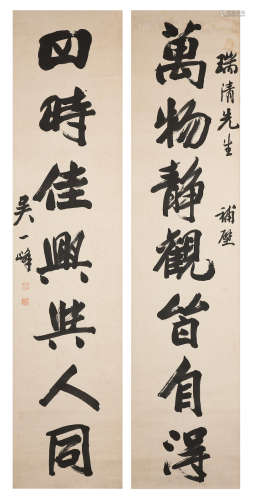 瑞清先生 補壁
萬物静觀皆自得
四時佳興與人同
吴一峰